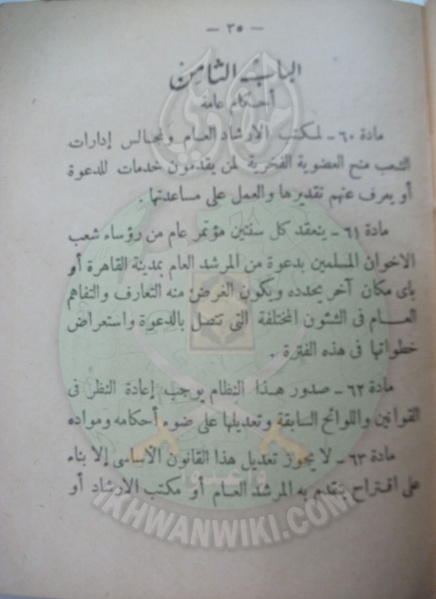 — ٣٥ —
الباب الثامن
أحكام عامة
مادة ٦٠ - لمكتب الارشاد العام ومجالس إدارات
الشعب منح العضوية الفخرية لمن يقدمون خدمات للدعوة
أو يعرف عنهم تقديرها والعمل على مساعدتها .
مادة ٦١ - ينعقد كل سنتين مؤتمر عام من رؤساء شعب
الاخوان المسلمين بدعوة من المرشد العام بمدينة القاهرة أو
بأى مكان آخر يحدده ويكون الغرض منه التعارف والتفاهم
العـام فى الشئون المختلفة التى تتصل بالدعوة واستعراض
خطواتها فى هذه الفترة .
مادة ٦٢ - صدور هـذا النظام يوجب إعادة النظر فى
القوانين واللوائح السابقة وتعديلها على ضوء أحكامه ومواده
مادة ٦٣ - لا يجوز تعديل هذا القانون الأساسى إلا بناء
على اقتراح يتقدم به المرشد العـام أو مكتب الارشاد أو
وأعدوا
IKHWANWIKI.COM